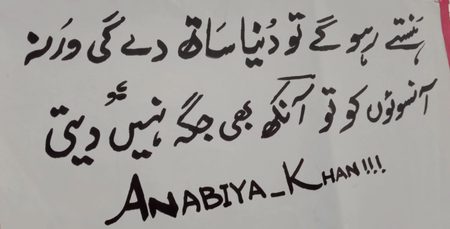 ہنستے رہو گے تو دُنیا ساتھ دے گی وَرنہ
آنسوؤں کو تو آنکھ بھی جگہ نہیں دیتی
ANABIYA_KHAN!!!